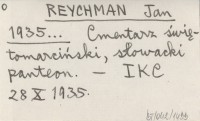 REYCHMAN Jan
1935... Cmentarz świę-
tomarciński, słowacki
panteon. – IKC
28 X 1935.